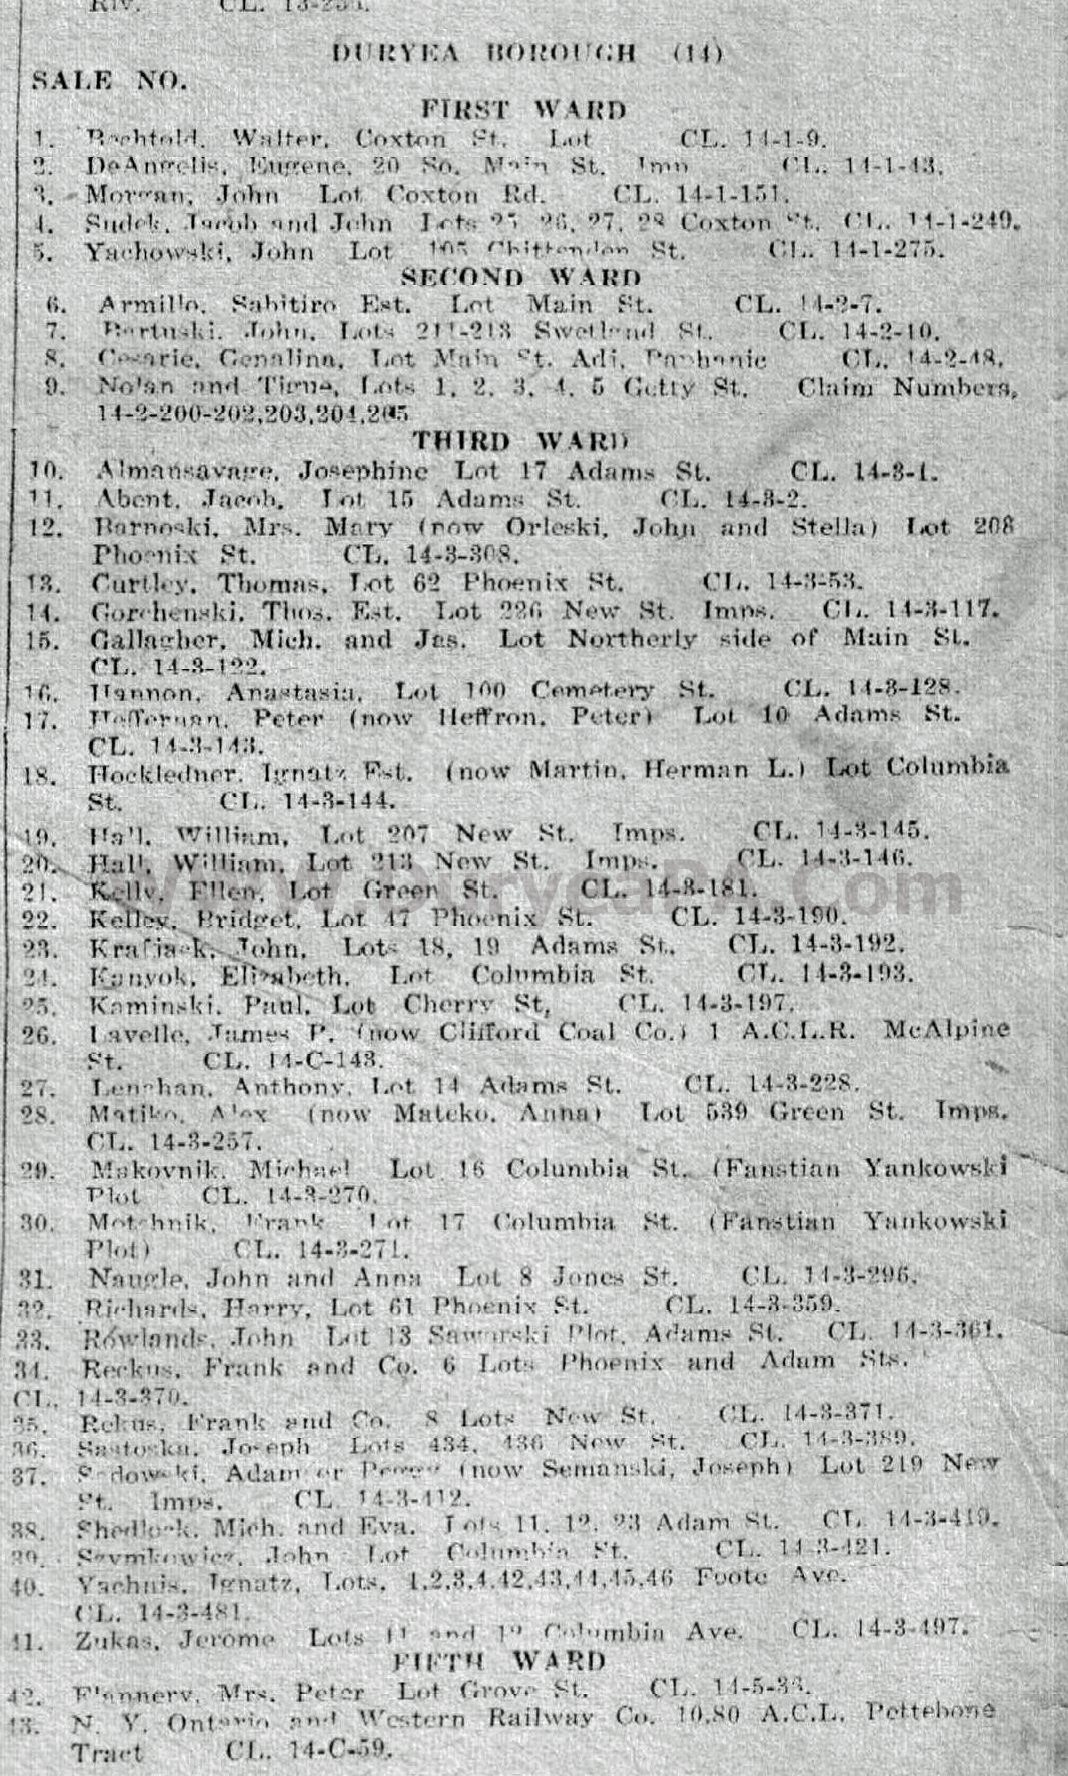 Riv. CL. 13-
DURYEA BOROUGH (14)
SALE NO.
FIRST WARD
1. Bechtold, Walter, Coxton St. Lot CL. 14-1-9.
2. DeAngelis, Eugene, 20 So. Main St. Imp CL. 14-1-43.
3. Morgan, John Lot Coxton Rd. CL. 14-1-151.
4. Sudek, Jacob and John Lots 25, 26, 27, 28 Coxton St. CL. 14-1-249.
5. Yachowski, John Lot 105 Chittenden St. CL. 14-1-275.
SECOND WARD
6. Armillo, Sabitiro Est. Lot Main St. CL. 14-2-7.
7. Bartuski, John, Lots 211-213 Swetland St. CL. 14-2-10.
8. Cesarie, Genalina, Lot Main St. Adj. CL. 14-2-48.
9. Nolan and Tigue, Lots 1, 2, 3, 4, 5 Getty St. Claim Numbers,
14-2-200-202,203,204,205
THIRD WARD
10. Almansavage, Josephine Lot 17 Adams St. CL. 14-3-1.
11. Abent, Jacob, Lot 15 Adams St. CL. 14-3-2.
12. Barnoski, Mrs. Mary (now Orleski, John and Stella) Lot 208
Phoenix St. CL. 14-3-308.
13. Curtley, Thomas, Lot 62 Phoenix St. CL. 14-3-53.
14. Gorchenski, Thos. Est. Lot 226 New St. Imps. CL. 14-3-117.
15. Gallagher, Mich. and Jas. Lot Northerly side of Main St.
CL. 14-3-122.
16. Hannon, Anastasia, Lot 100 Cemetery St. CL. 14-3-128.
17. Heffernan, Peter (now Heffron, Peter) Lot 10 Adams St.
CL. 14-3-143.
18. Hockledner, Ignatz Est. (now Martin, Herman L.) Lot Columbia
St. CL. 14-3-144.
19. Hall, William, Lot 207 New St. Imps. CL. 14-3-145.
20. Hall, William, Lot 213 New St. Imps. CL. 14-3-146.
www.DuryeaPA.Com
21. Kelly, Ellen, Lot Green St. CL. 14-3-181.
22. Kelley, Bridget, Lot 47 Phoenix St. CL. 14-3-190.
23. Krafjack, John, Lots 18, 19 Adams St. CL. 14-3-192.
24. Kanyok, Elizabeth, Lot Columbia St. CL. 14-3-193.
25. Kaminski, Paul, Lot Cherry St, CL. 14-3-197.
26. Lavelle, James P. (now Clifford Coal Co.) 1 A.C.L.R. McAlpine
St. CL. 14-C-143.
27. Lenehan, Anthony, Lot 14 Adams St. CL. 14-3-228.
28. Matiko, Alex (now Mateko, Anna) Lot 539 Green St. Imps.
CL. 14-3-257.
29. Makovnik, Michael Lot 16 Columbia St. (Fanstian Yankowski
Plot CL. 14-3-270.
30. Motchnik, Frank Lot 17 Columbia St. (Fanstian Yankowski
Plot) CL. 14-3-271.
31. Naugle, John and Anna Lot 8 Jones St. CL. 14-3-296.
32. Richards, Harry, Lot 61 Phoenix St. CL. 14-3-359.
33. Rowlands, John Lot 13 Sawarski Plot, Adams St. CL. 14-3-361.
34. Reckus, Frank and Co. 6 Lots Phoenix and Adam Sts.
CL. 14-3-370.
35. Rekus, Frank and Co. 8 Lots New St. CL. 14-3-371.
36. Sastoska, Joseph Lots 434, 436 New St. CL. 14-3-389.
37. Sadowski, Adam or (now Semanski, Joseph) Lot 219 New
St. Imps. CL. 14-3-412.
38. Shedlock, Mich. and Eva. Lots 11, 12, 23 Adam St. CL. 14-3-419.
39. Szymkowicz, John Lot Columbia St. CL. 14-3-421.
40. Yachnis, Ignatz, Lots, 1,2,3,4,42,43,44,45,46 Foote Ave.
CL. 14-3-481.
41. Zukas, Jerome Lots 11 and 12 Columbia Ave. CL. 14-3-497.
FIFTH WARD
42. Flannery, Mrs. Peter Lot Grove St. CL. 14-5-36.
43. N. Y. Ontario and Western Railway Co. 10.80 A.C.L. Pettebone
Tract CL. 14-C-59.